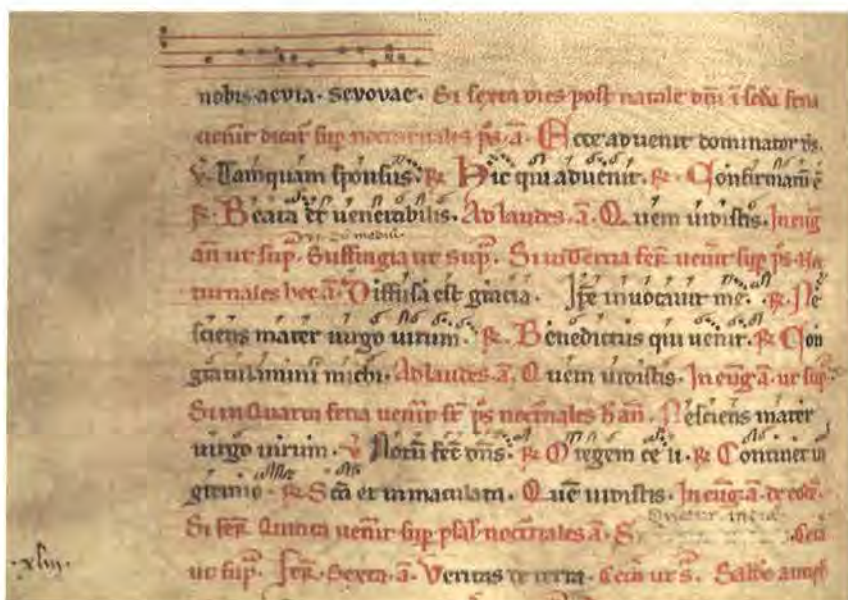 nobis. aevia. Sevovae. Si sexta dies post natale dñi ĩ scđa feria
uenir dicat̃ sup nocturnales p̃s. ã. Ecce aduenit dominator dñs.
℣. Tamquam sponsus. ℟. Hic qui aduenit. ℟. Confirmatũ ẽ
℟. Beata et uenerabilis. Ad laudes. ã. Quem uidistis. In eug̃
añ ut sup̃. Suffragia ut sup̃. Si in Tertia fer̃ uenit sup p̃s. No
turnales hec ã. Diffusa est gracia. Ipse inuocauit me. ℟. Ne
sciens mater uirgo uirum. ℟. Benedictus qui uenit. ℟. Con
gratulamini michi. Ad laudes. ã. Quem uidistis. In eug̃ ã. ut sup̃.
Si in Quarta feria uenit p̃s noct̃nales añ. Nesciens mater
uirgo uirum. ℣. Notũ fec̃ dñs. ℟. O regem celi. ℟. Continet in
gremio. ℟. Sc̃a et inmaculata. Quẽ uidistis. In eug̃ ã.
Si fer̃ Quinta uenit sup psal̃ noct̃nales ã. S
.xliii.
ut sup̃. fer̃. Sexta. ã. Veritas de terra. ut s̃.